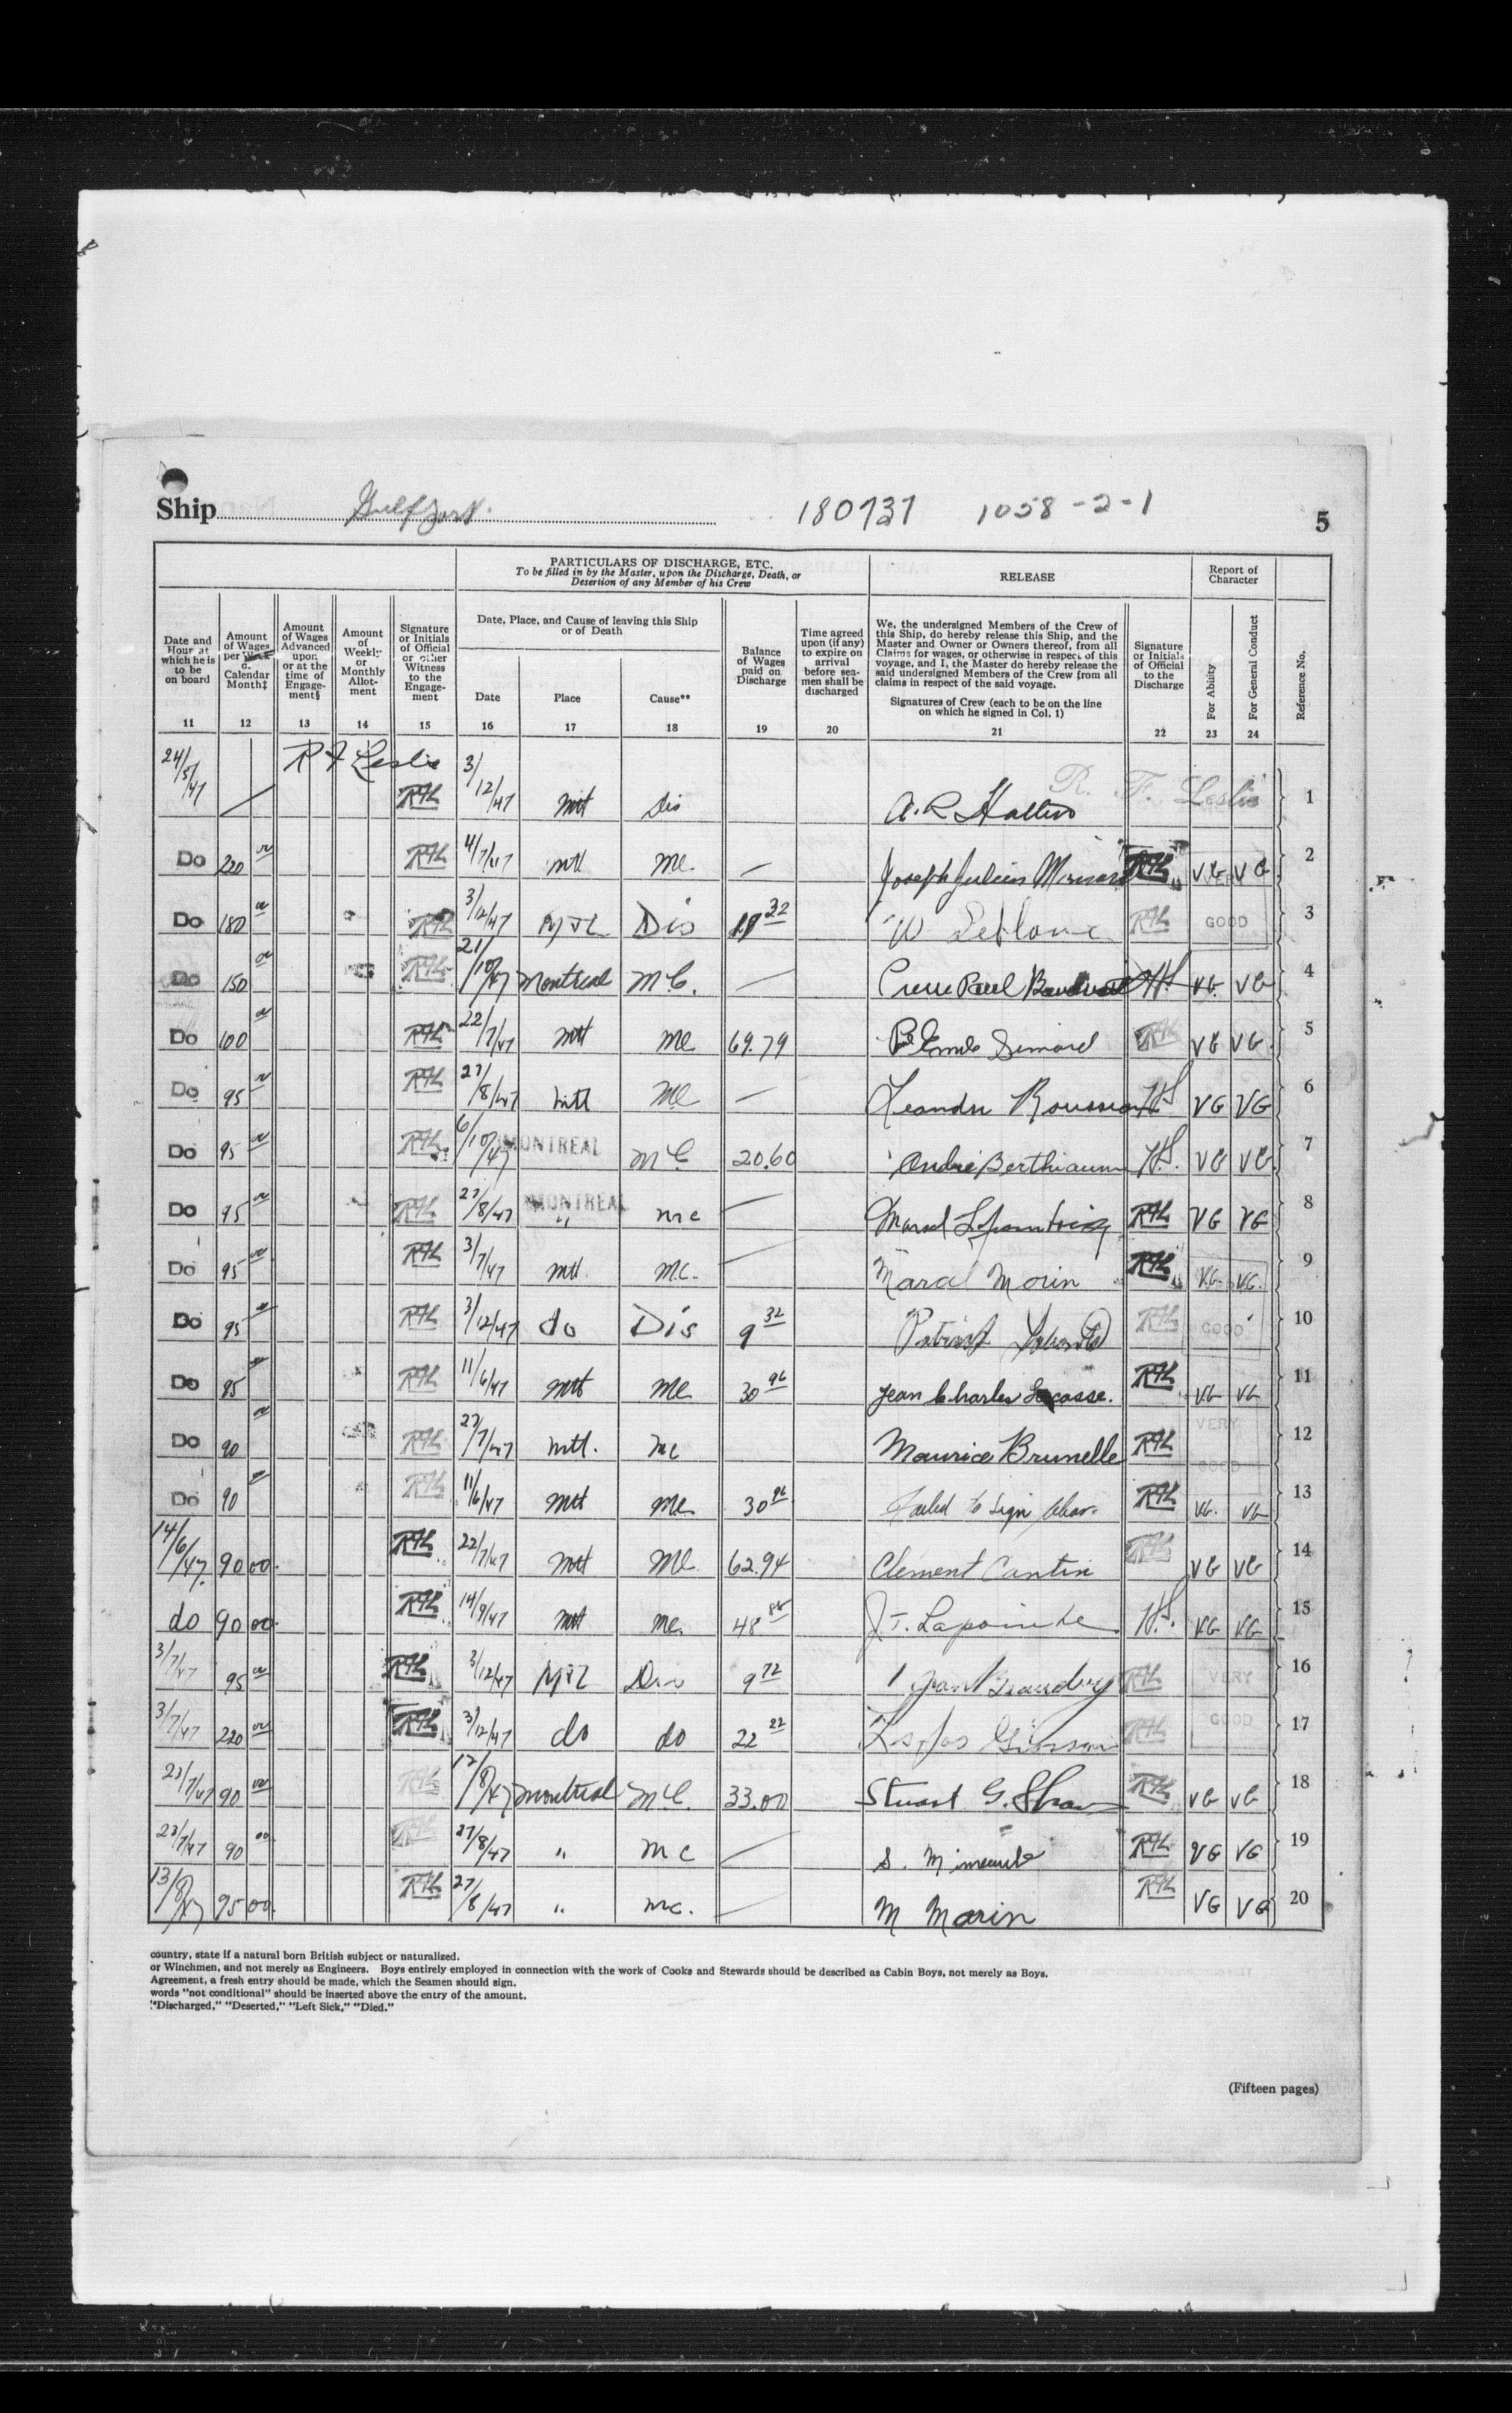 Ship Gulfport. 180737 1058-2-1 5
PARTICULARS OF DISCHARGE, ETC.
To be filled in by the Master, upon the Discharge, Death, or
Desertion of any Member of his Crew
RELEASE
Report of
Character
Date and
Hour at
which he is
to be
on board
11
Amount
of Wages
per Week
or
Calendar
Month‡
12
Amount
of Wages
Advanced
upon
or at the
time of
Engage-
ment§
13
Amount
of
Weekly
or
Monthly
Allot-
ment
14
Signature
or Initials
of Official
or other
Witness
to the
Engage-
ment
15
Date, Place, and Cause of leaving this Ship
or of Death
Date
16
Place
17
Cause**
18
Balance
of Wages
paid on
Discharge
19
Time agreed
upon (if any)
to expire on
arrival
before sea-
men shall be
discharged
20
We, the undersigned Members of the Crew of
this Ship, do hereby release this Ship, and the
Master and Owner or Owners thereof, from all
Claims for wages, or otherwise in respect of this
voyage, and I, the Master do hereby release the
said undersigned Members of the Crew from all
claims in respect of the said voyage.
Signatures of Crew (each to be on the line
on which he signed in Col. 1)
21
Signature
or Initials
of Official
to the
Discharge
22
For Ability
23
For General Conduct
24
Reference No.
24/5/47 R F Leslie RFL 3/12/47 Mtl Dis A. R. R. F. Leslie 1
Do 220 00 RFL 4/7/47 Mtl MC. — Joseph Julien RFL VG VG 2
Do 180 00 RFL 3/12/47 MTL Dis 32 W Leblanc RFL GOOD 3
Do 150 00 RFL 21/10/47 Montreal MC. — Paul HS. VG VG 4
Do 100 00 RFL 22/7/47 Mtl MC 69.79 Emile Simard RFL VG VG 5
Do 95 00 RFL 27/8/47 Mtl MC — Leandre HS VG VG 6
Do 95 00 RFL 6/10/47 MONTREAL MC 20.60 André Berthiaume HS. VG VG 7
Do 95 00 RFL 27/8/47 MONTREAL " MC — RFL VG VG 8
Do 95 00 RFL 3/7/47 Mtl. MC. — Marcel Morin RFL VG. VG. 9
Do 95 00 RFL 3/12/47 do Dis 9 32 RFL GOOD 10
Do 95 00 RFL 11/6/47 Mtl MC 30 96 Jean Charles Lacasse. RFL VG VG 11
Do 90 00 RFL 27/7/47 Mtl. MC Maurice Brunelle RFL VERY GOOD 12
Do 90 00 RFL 11/6/47 Mtl MC 30 96 Failed to Sign Clear. RFL VG. VG 13
14/6/47. 90 00. RFL 22/7/47 Mtl MC 62.94 Clement Cantin RFL VG VG 14
do 90 00 RFL 14/9/47 Mtl MC. 48 J. T. Lapointe HS. VG VG 15
3/7/47 95 00 RFL 3/12/47 MTL Dis 9 72 RFL VERY 16
3/7/47 220 00 RFL 3/12/47 do do 22 22 RFL GOOD 17
23/7/47 90 00 RFL 12/8/47 Montreal MC. 33.00 Stuart G. Shaw RFL VG VG 18
23/7/47 90 00 RFL 27/8/47 " MC — S. RFL VG VG 19
13/8/47 95 00. RFL 27/8/47 " MC. — M Morin RFL VG VG 20
country, state if a natural born British subject or naturalized.
or Winchmen, and not merely as Engineers. Boys entirely employed in connection with the work of Cooks and Stewards should be described as Cabin Boys, not merely as Boys.
Agreement, a fresh entry should be made, which the Seamen should sign.
words "not conditional" should be inserted above the entry of the amount.
"Discharged," "Deserted," "Left Sick," "Died."
(Fifteen pages)